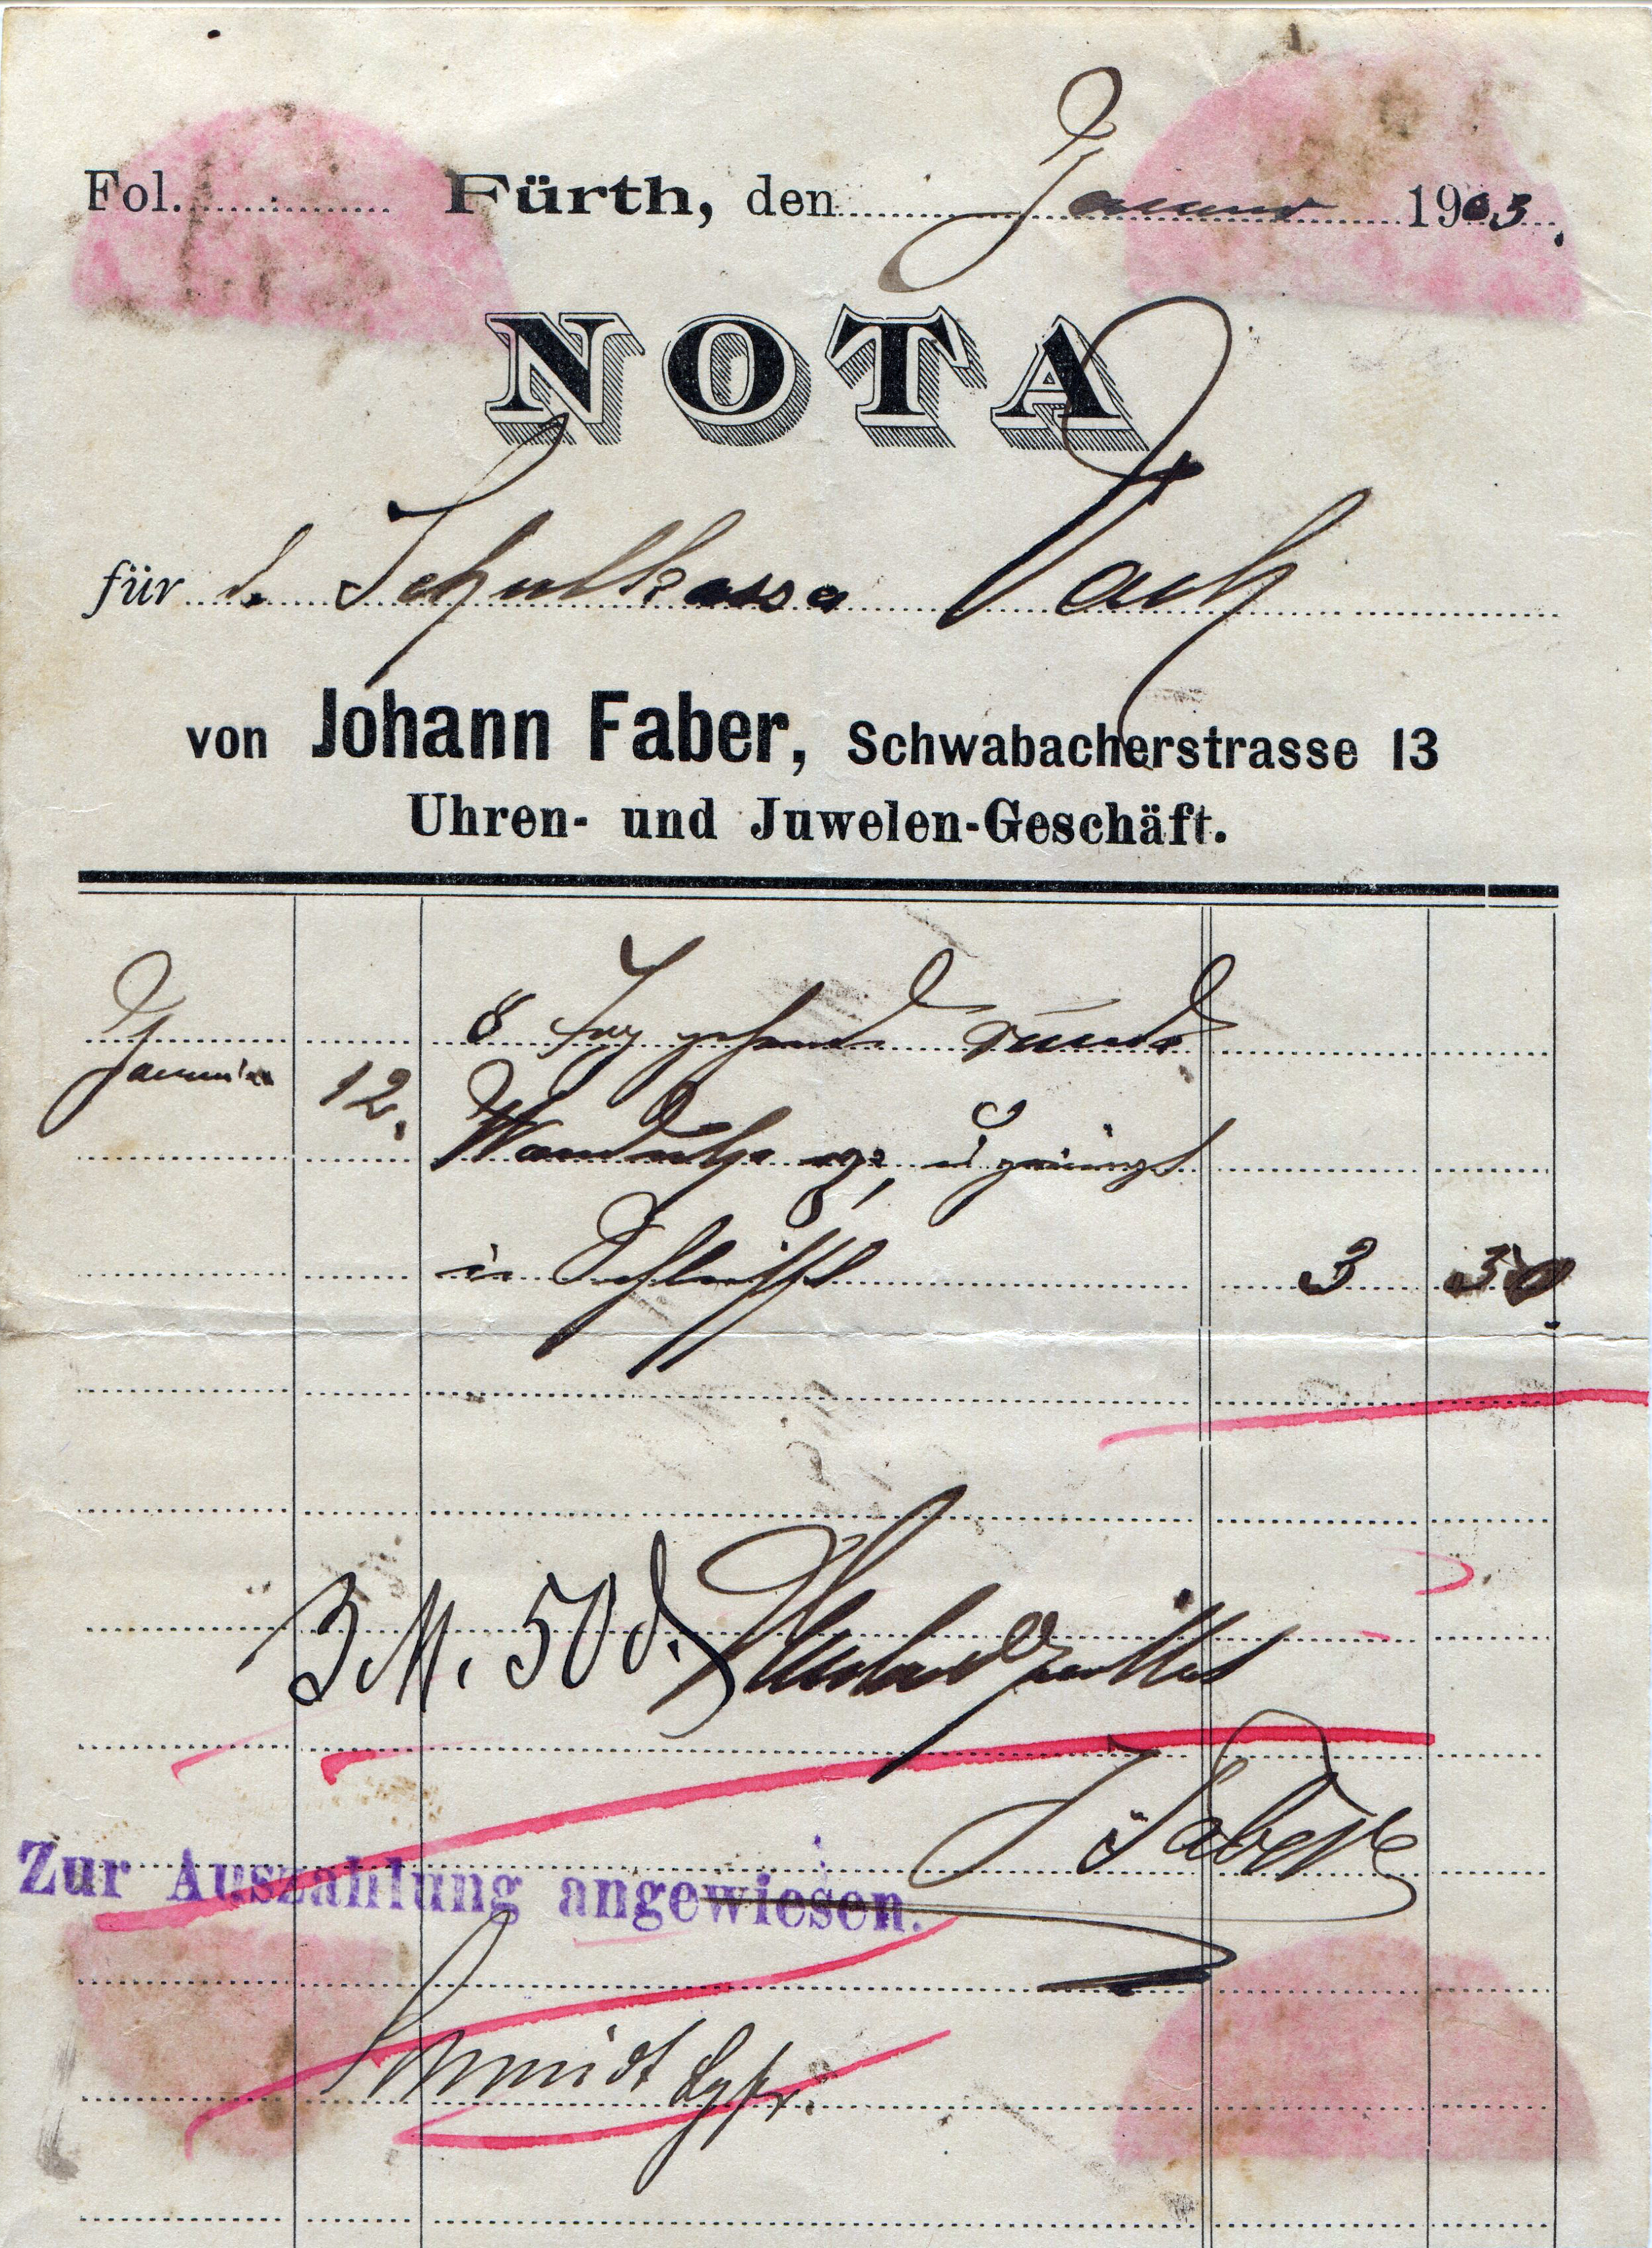 Fol. Fürth, den Januar 1903.
NOTA
für d. Schulkassa Vach
von Johann Faber, Schwabacherstrasse 13
Uhren- und Juwelen-Geschäft.
8 Tag gehend runde
Januar 12. Wanduhr
3 50.
3 M. 50 d. Dankend erhalten
J Faber
Zur Auszahlung angewiesen.
Schmidt